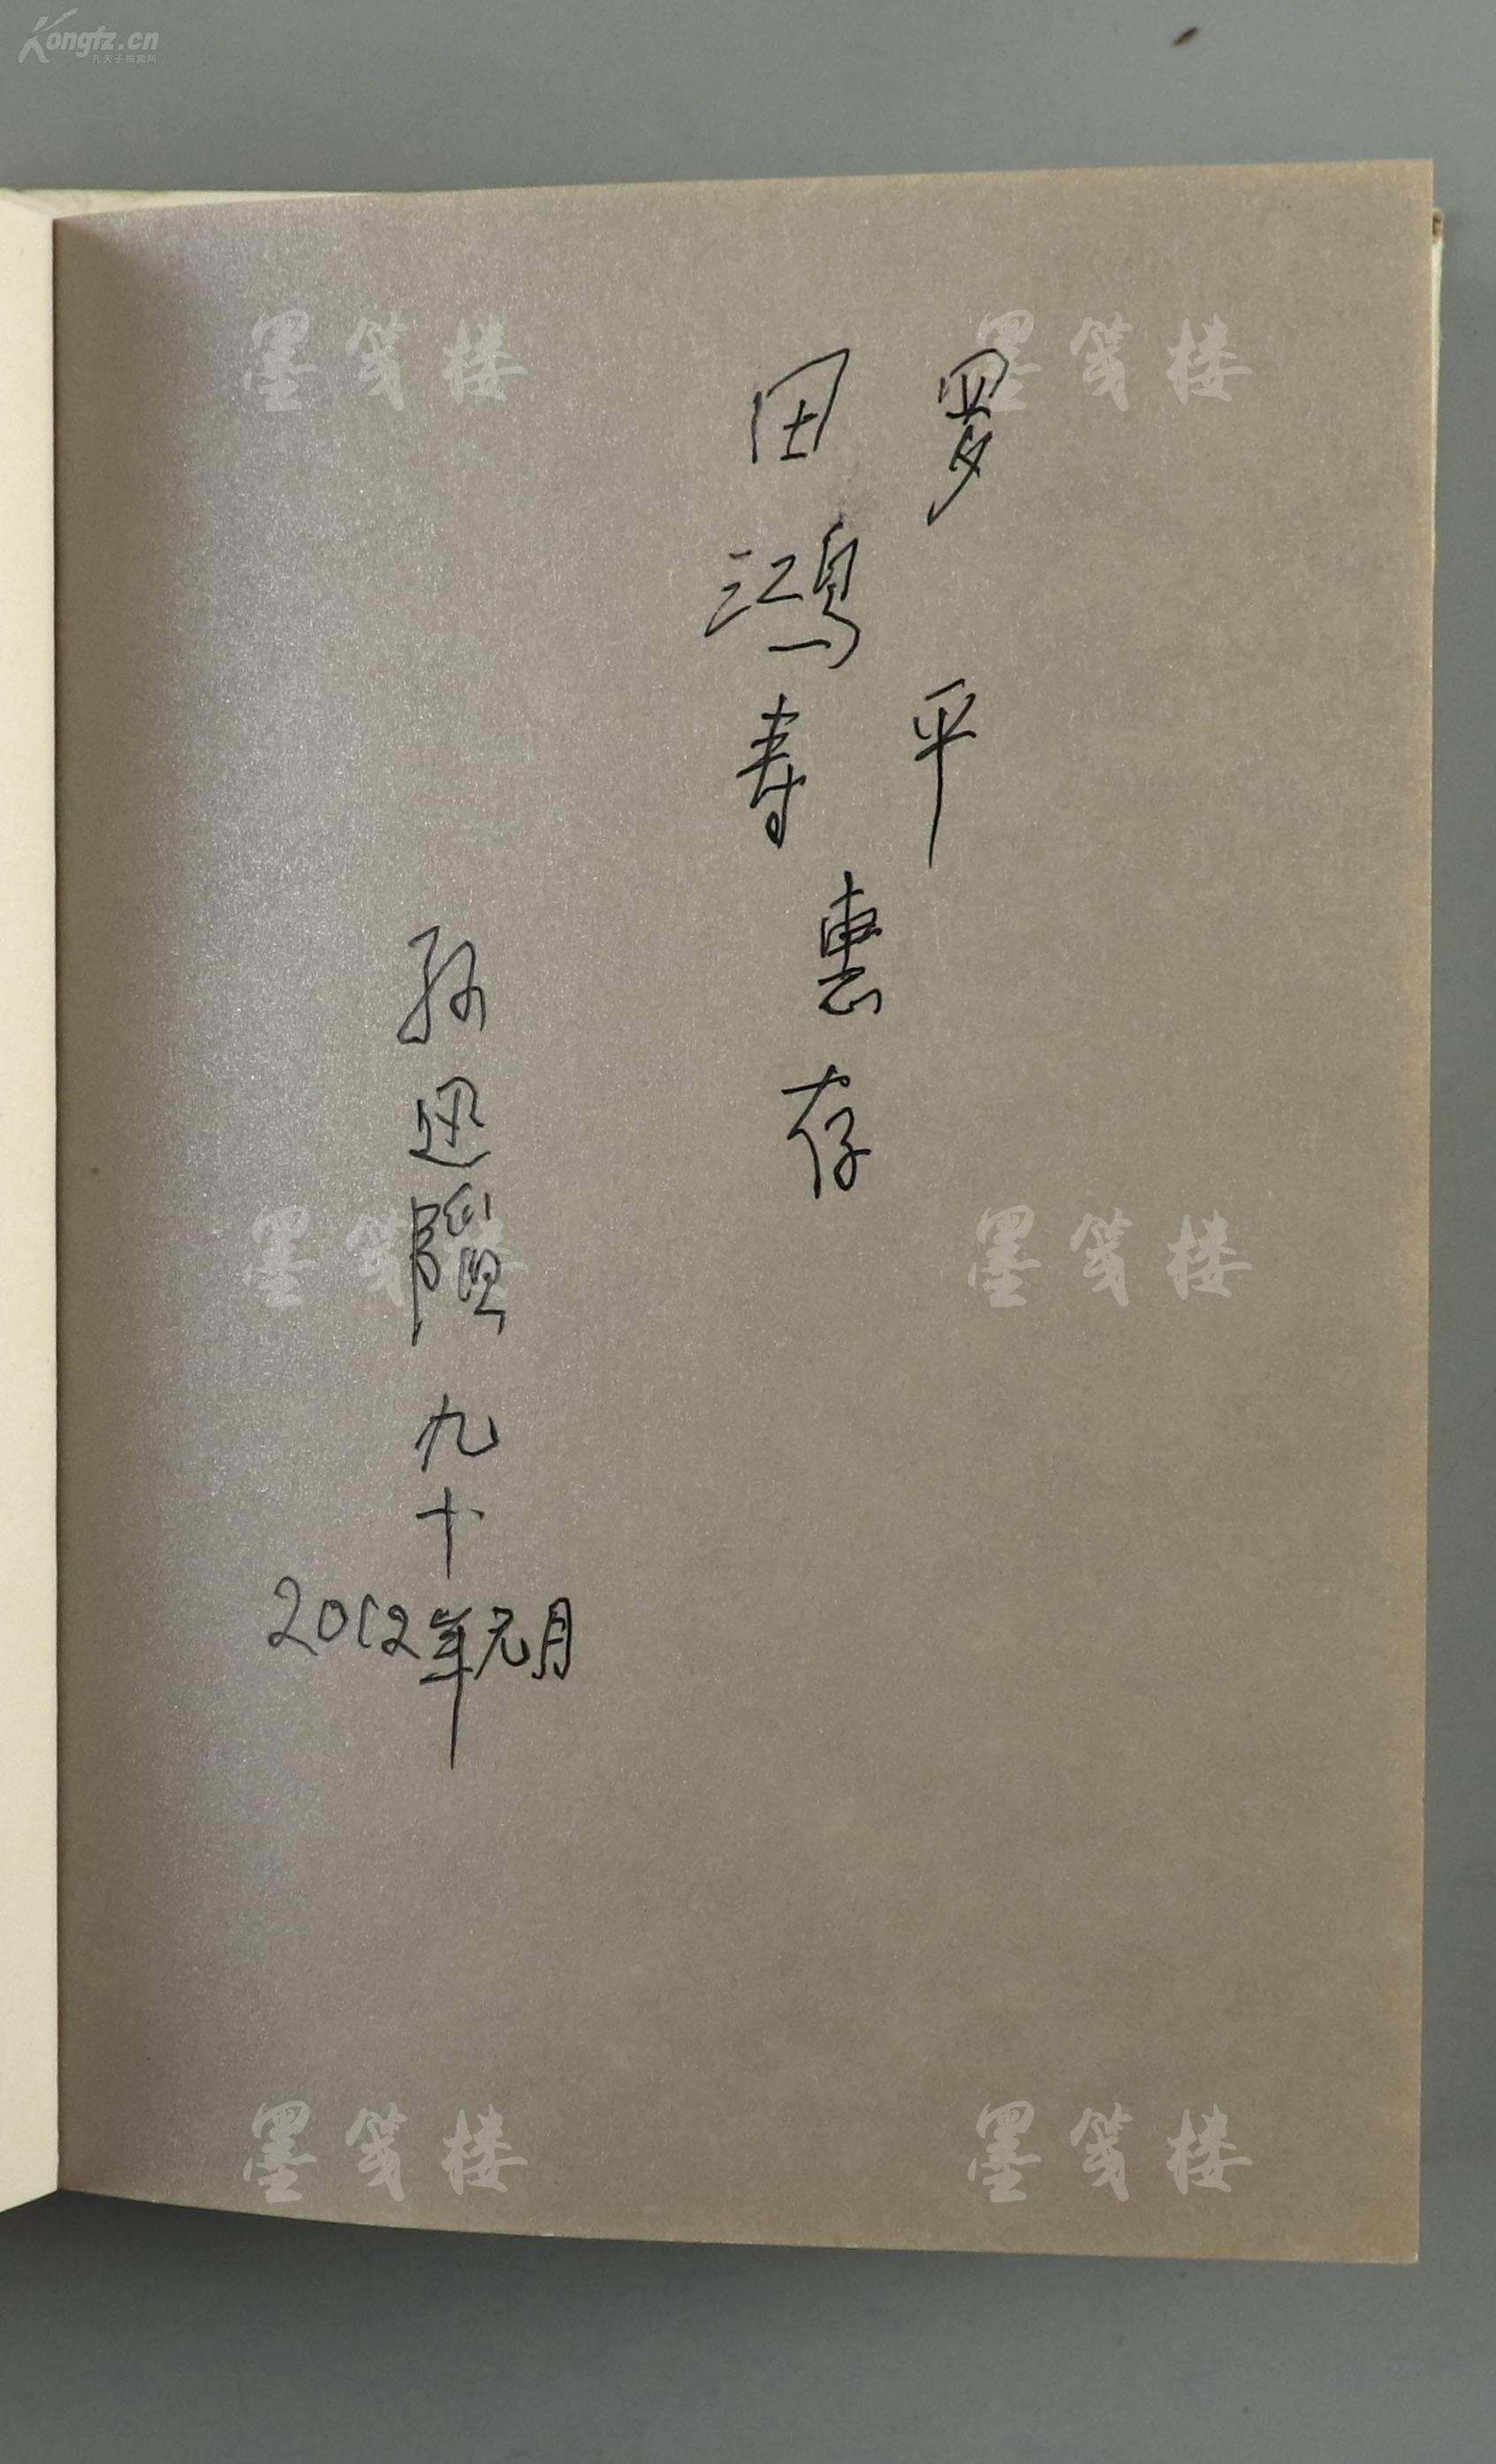 Kongfz.cn
孔夫子拍卖网
墨笺楼 墨笺楼
罗平
田鸿寿
惠存
孙
九十
2012年元月
墨笺楼 墨笺楼
墨笺楼 墨笺楼